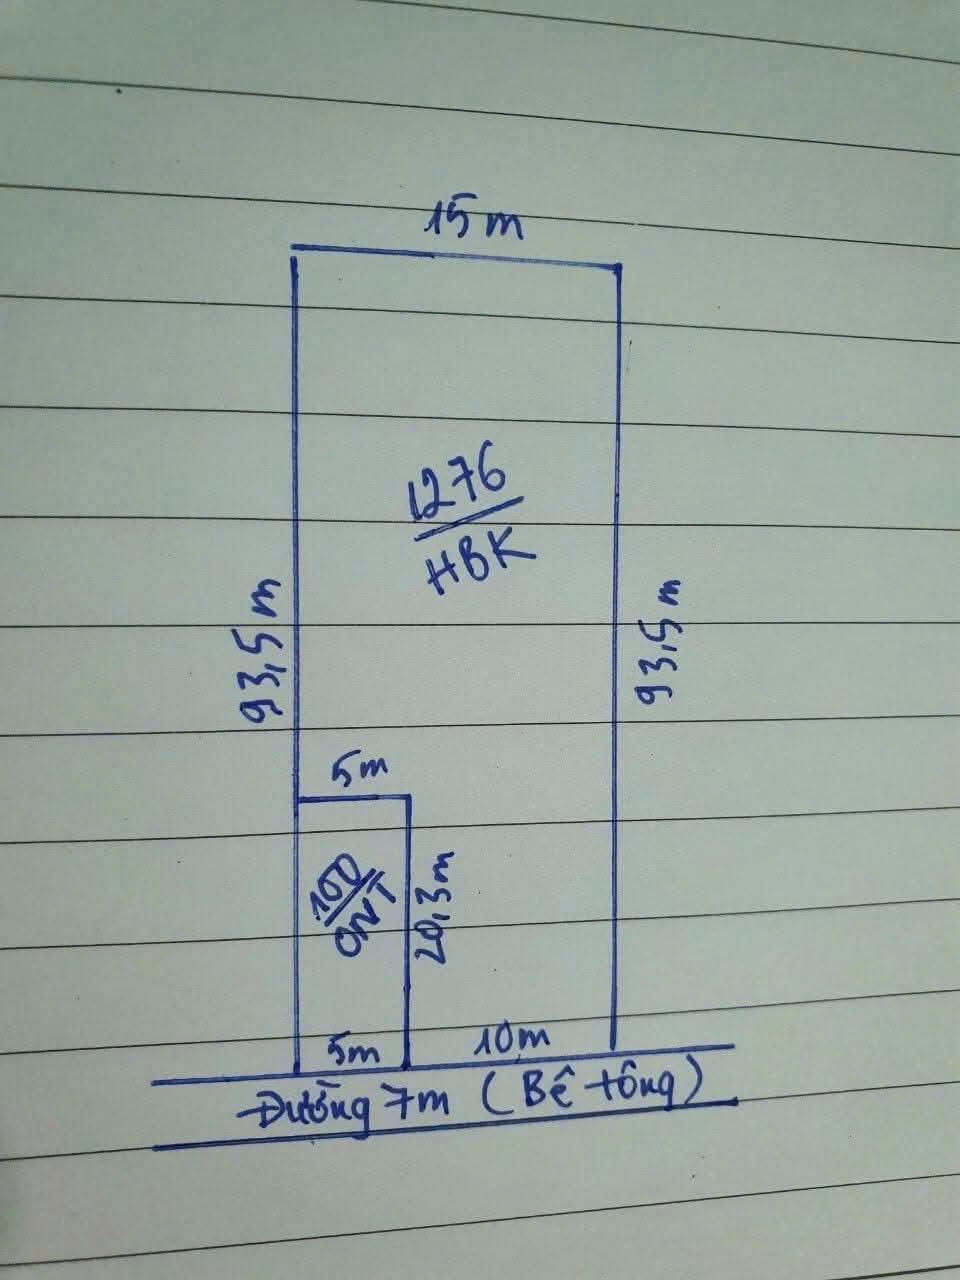 15m
1276
HBK
93,5m
93,5m
5m
100
ONT
20,3m
5m
10m
Đường 7m (Bê tông)